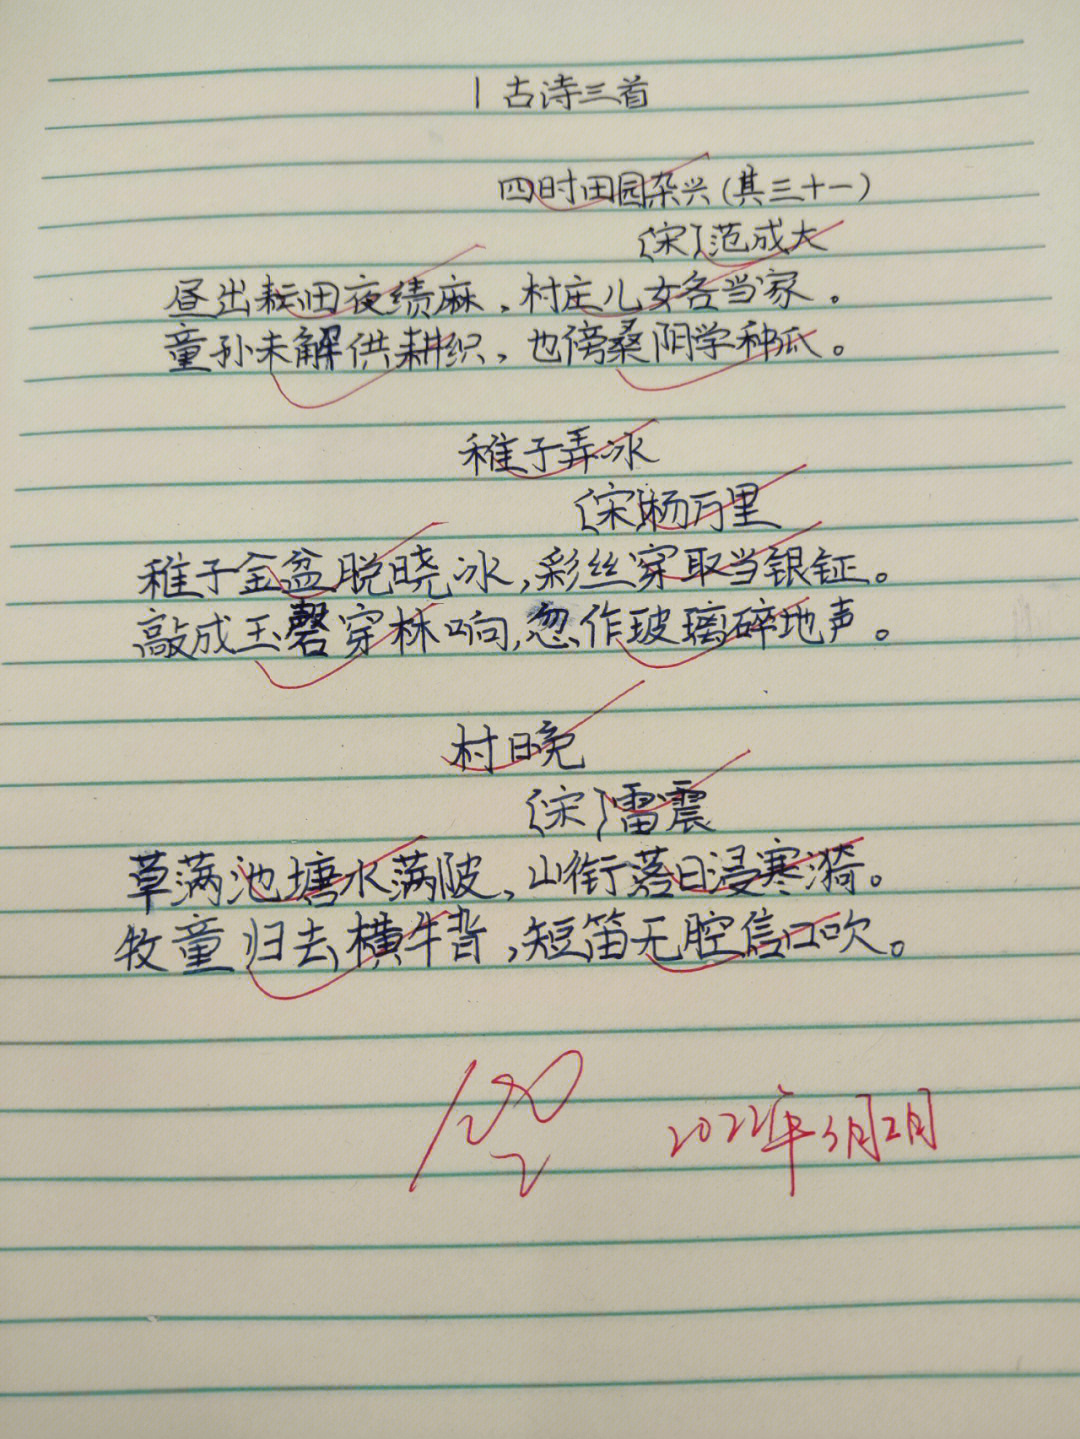 1 古诗三首
四时田园杂兴(其三十一)
〔宋〕范成大
昼出耘田夜绩麻，村庄儿女各当家。
童孙未解供耕织，也傍桑阴学种瓜。
稚子弄冰
〔宋〕杨万里
稚子金盆脱晓冰，彩丝穿取当银钲。
敲成玉磬穿林响，忽作玻璃碎地声。
村晚
〔宋〕雷震
草满池塘水满陂，山衔落日浸寒漪。
牧童归去横牛背，短笛无腔信口吹。
2022年3月2日